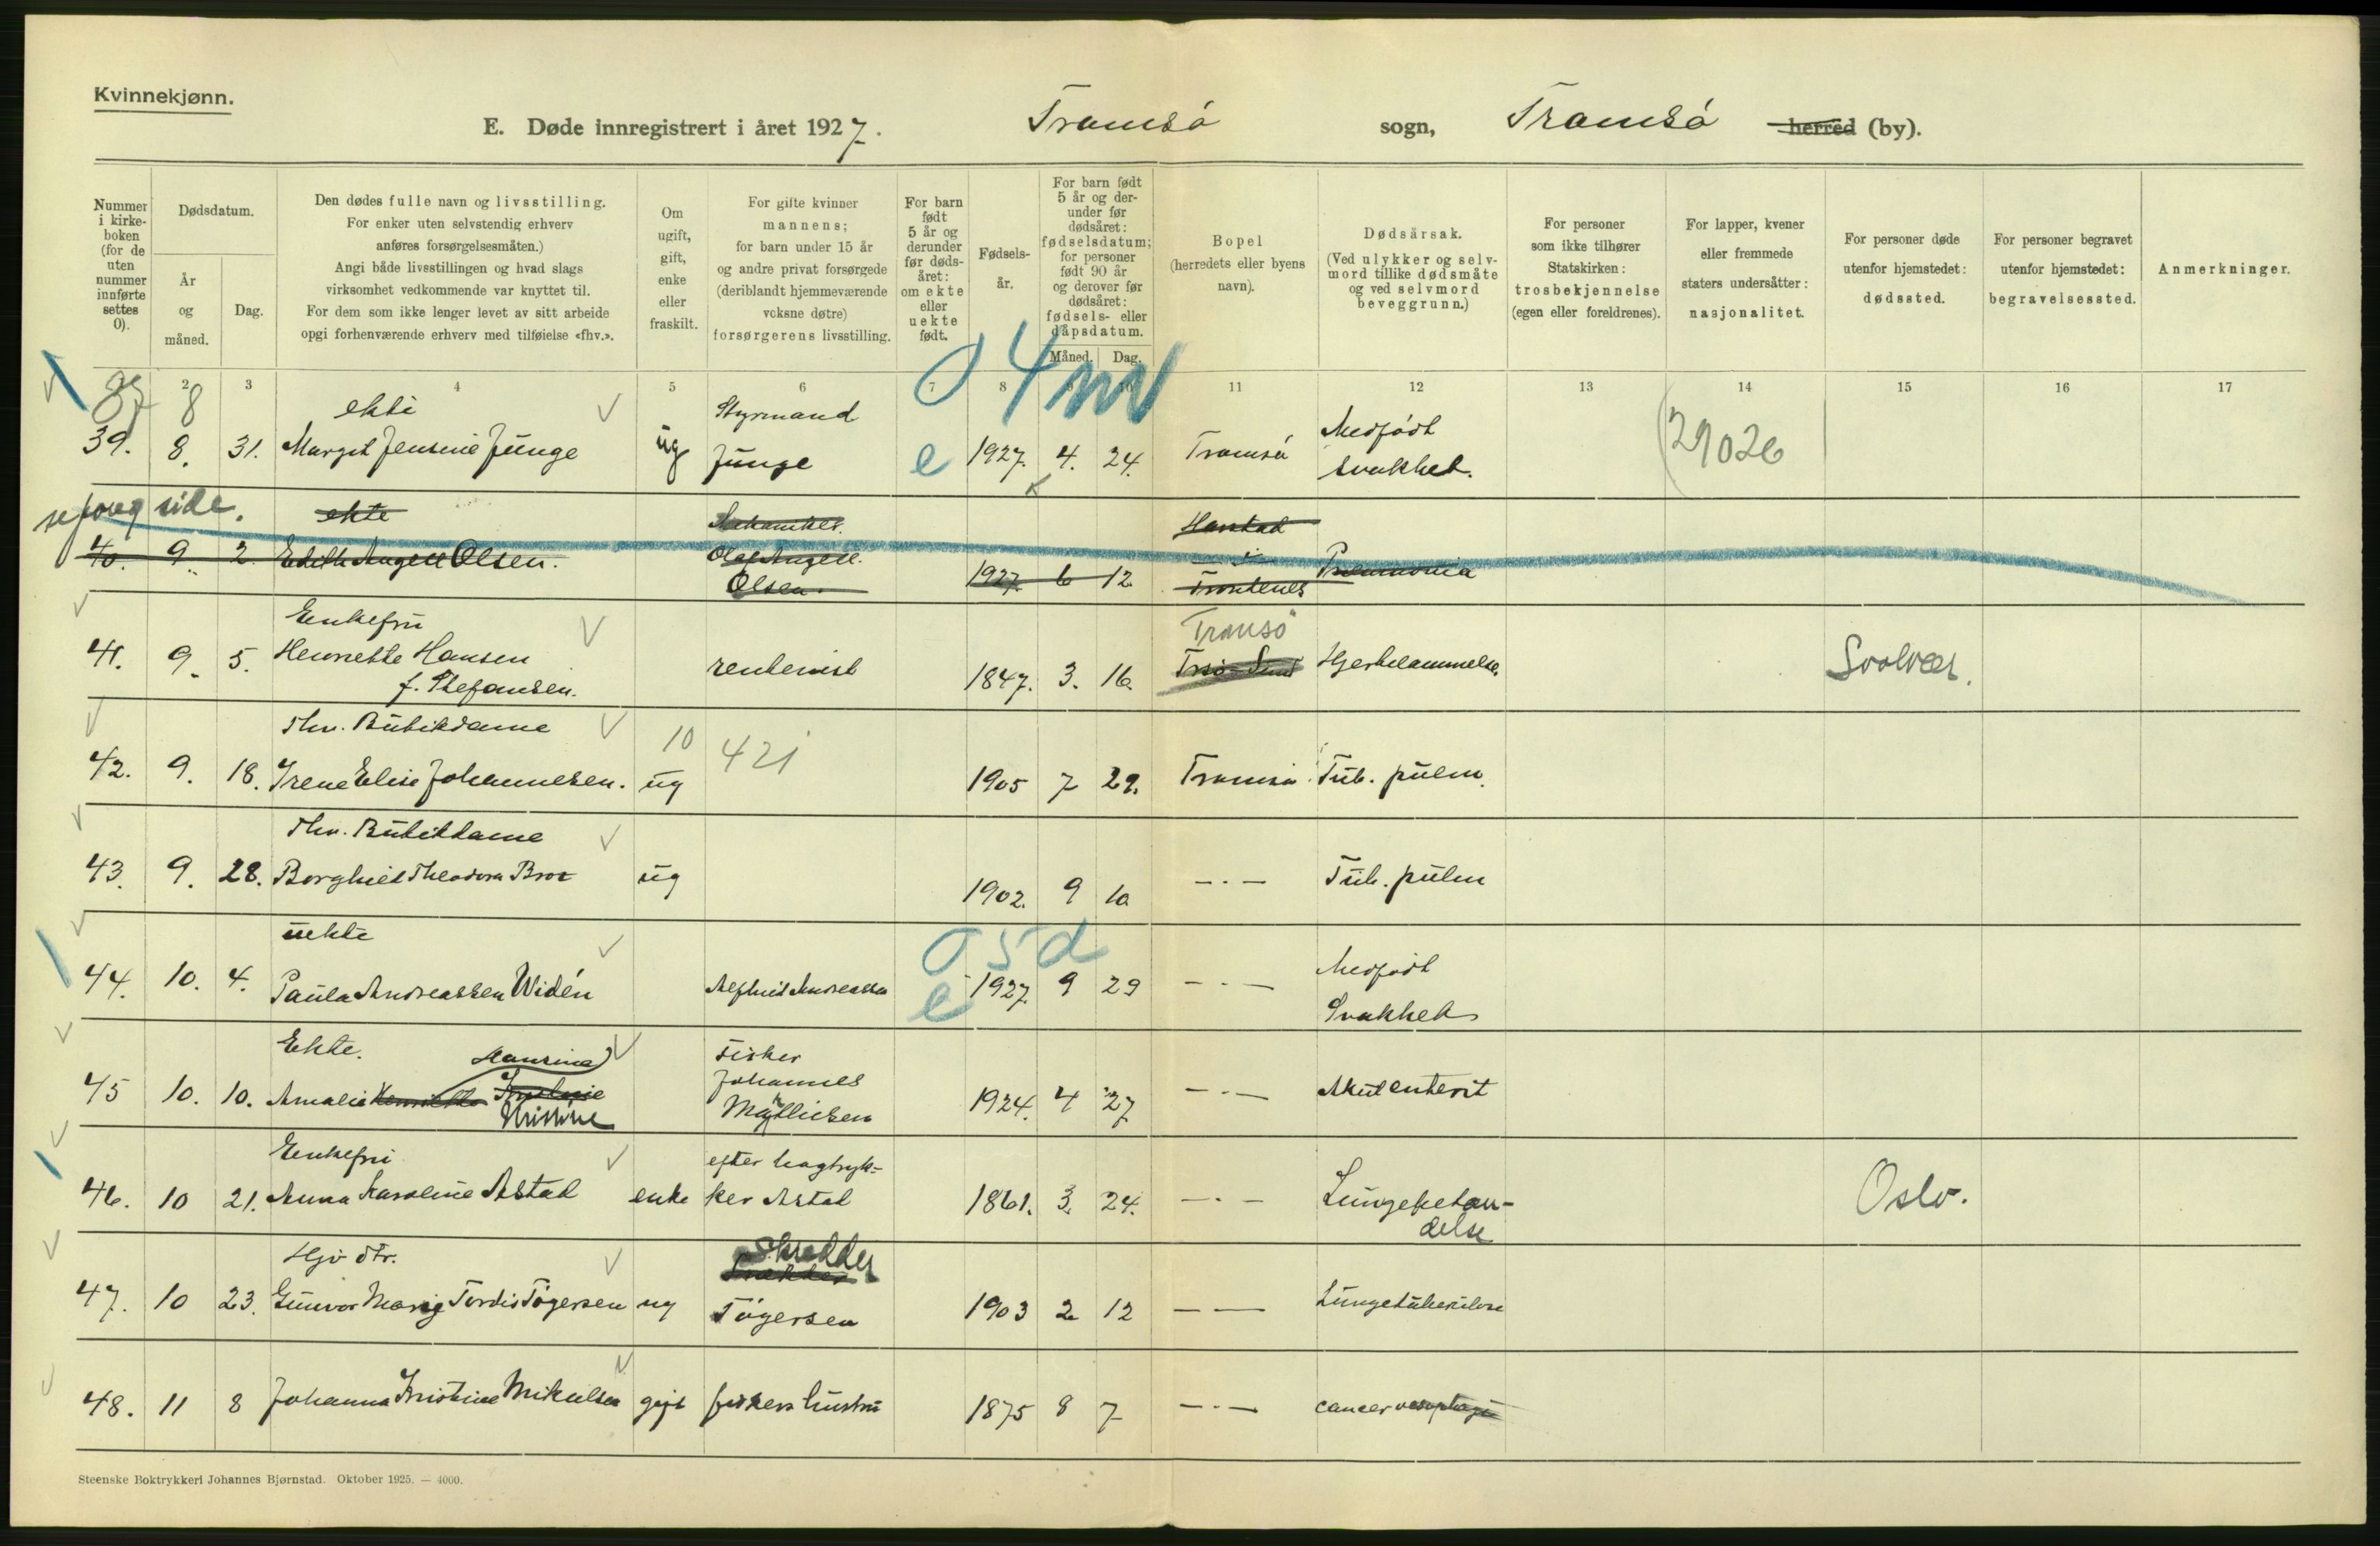 Kvinnekjønn.
E. Døde innregistrert i året 1927. Tromsø sogn, Tromsø herred (by).
Nummer i kirke-boken (for de uten nummer innførte settes 0).
Dødsdatum.
År og måned.
Dag.
Den dødes fulle navn og livsstilling.
For enker uten selvstendig erhverv
anføres forsørgelsesmåten.)
Angi både livsstillingen og hvad slags
virksomhet vedkommende var knyttet til.
For dem som ikke lenger levet av sitt arbeide
opgi forhenværende erhverv med tilføielse «fhv.».
Om ugift, gift, enke eller fraskilt.
For gifte kvinner
mannens;
for barn under 15 år
og andre privat forsørgede
(deriblandt hjemmeværende
voksne døtre)
forsørgerens livsstilling.
For barn født 5 år og derunder før døds-året: om ekte eller uekte født.
Fødsels-år.
For barn født
5 år og der-
under før
dødsåret:
fødselsdatum;
for personer
født 90 år
og derover før
dødsåret:
fødsels- eller
dåpsdatum.
Måned. Dag.
Bopel
(herredets eller byens
navn).
Dødsårsak.
(Ved ulykker og selv-
mord tillike dødsmåte
og ved selvmord
beveggrunn.)
For personer
som ikke tilhører
Statskirken:
trosbekjennelse
(egen eller foreldrenes).
For lapper, kvener
eller fremmede
staters undersåtter:
nasjonalitet.
For personer døde
utenfor hjemstedet:
dødssted.
For personer begravet
utenfor hjemstedet:
begravelsessted.
Anmerkninger.
2 3 4 5 6 7 8 9 10 11 12 13 14 15 16 17
87 8 ekte Styrmand 04 Medfødt 29026
39. 8. 31. Margit Jensine Junge ug Junge e 1927. 4. 24. Tromsø svakhet.
se foreg side. ekte Harstad
40. 9. 2. Edith Angell Olsen. Olaf Angell. Olsen 1927 6 12. i Trondenes Pneumonia
Enkefru Tromsø
41. 9. 5. Henriette Hansen rentenist 1847. 3. 16. Hjertelammelse. Svolvær.
f. Stefansen.
fhv. Butikdame 10 421
42. 9. 18. Irene Elise Johannesen. ug 1905 7 29. Tromsø Tub. pulm.
fhv. Butikdame
43. 9. 28. Borghild Theodora Broz ug 1902. 9 10 — . — Tub. pulm
uekte 05d Medfødt
44. 10. 4. Paula Andreassen Widén Alfhild Andreassen e 1927. 9 29 — . — Svakhet
Ekte. Hansine Fisker
45 10. 10. Amalie Henriette Kristine Johannes Mathiesen 1924. 4 27 — . — Akut enterit
Enkefru efter bogtryk-
46. 10 21. Anna Karoline Astad enke ker Astad 1861. 3. 24. — . — Lungebetæn- Oslo.
delse
Hj. dtr. Skredder
47. 10 23. Gunvor Marie Tordis Tøgersen ug Tøgersen 1903 2 12 — — Lungetuberkulose
48. 11 8 Johanna Kristine Mikkelsen gift fiskers hustru 1875 8 7 — . — cancer oesophagi
Steenske Boktrykkeri Johannes Bjørnstad. Oktober 1925. — 4000.